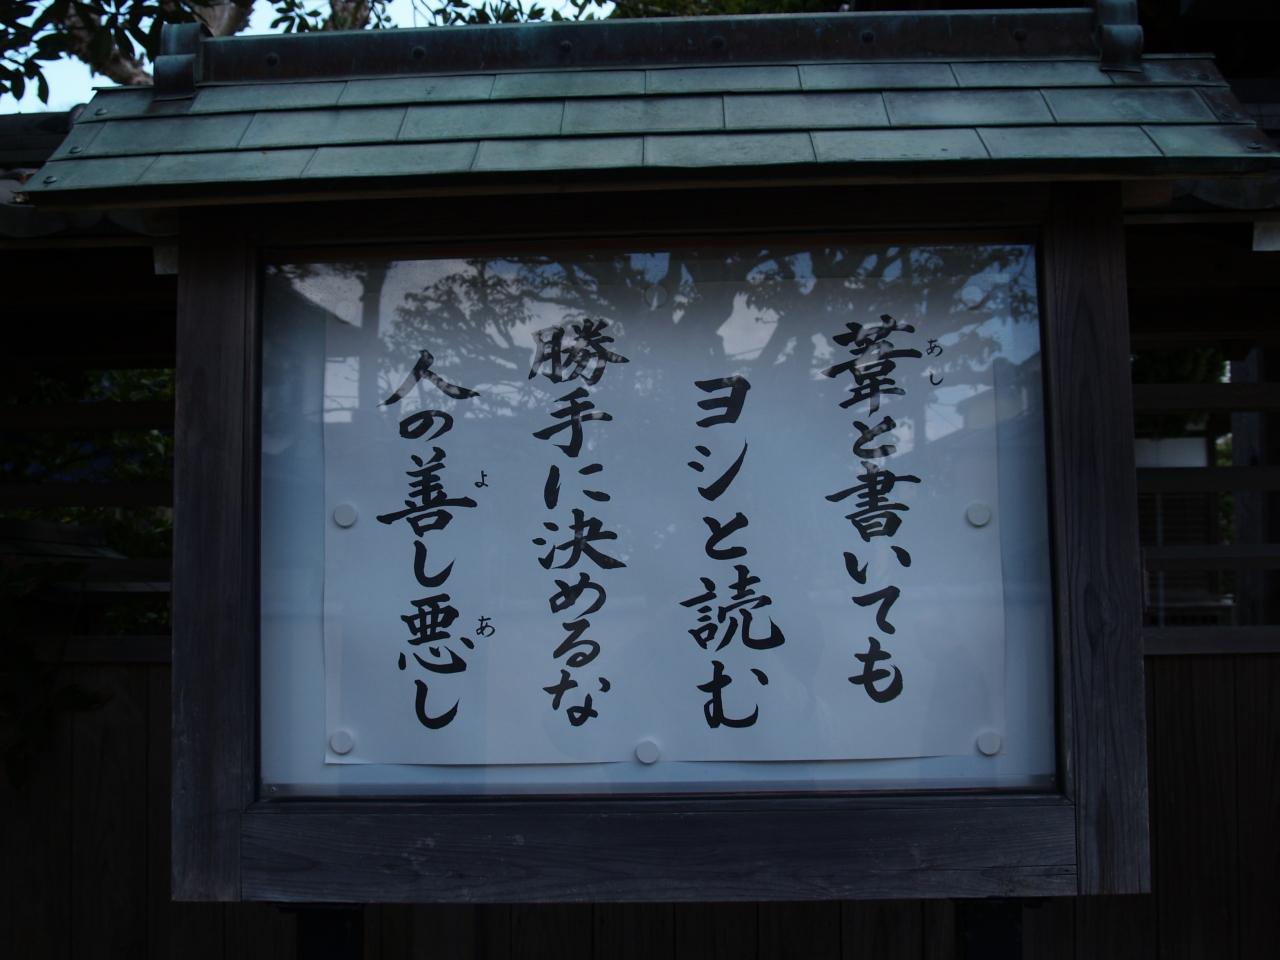 葦と書いても
あし
ヨシと読む
勝手に決めるな
人の善し悪し
よ
あ